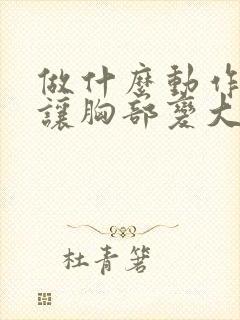 做什麼動作
讓胸部變大
杜青箬